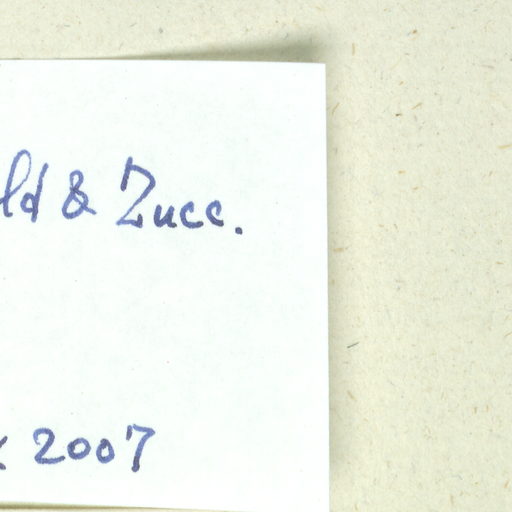 ld & Zucc.
2007